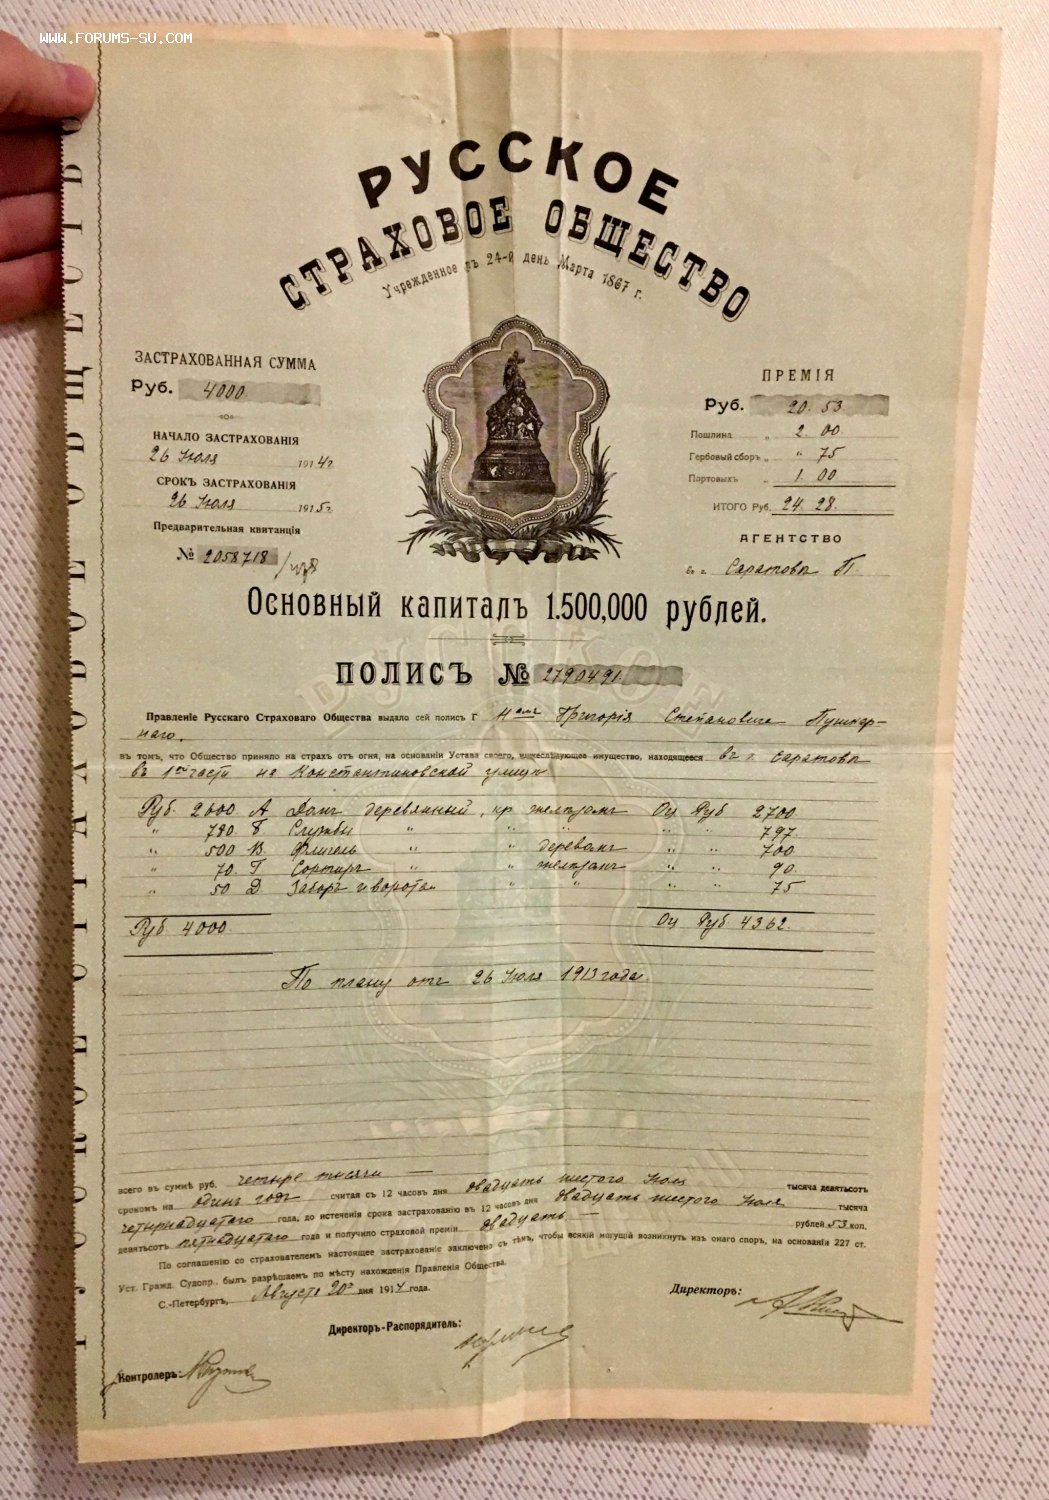 www.forums-su.com
РУССКОЕ
СТРАХОВОЕ ОБЩЕСТВО
Учрежденное въ 24-й день Марта 1867 г.
ЗАСТРАХОВАННАЯ СУММА
Руб. 4000
НАЧАЛО ЗАСТРАХОВАНІЯ
26 Іюля 1914 г.
СРОКЪ ЗАСТРАХОВАНІЯ
26 Іюля 1915 г.
Предварительная квитанція
№ 2058718
ПРЕМІЯ
Руб. 20. 53
Пошлина „ 2. 00.
Гербовый сборъ „ " 75
Портовыхъ „ 1. 00
ИТОГО Руб. 24. 28.
АГЕНТСТВО
въ г. Саратовъ П.
Основный капиталъ 1.500,000 рублей.
ПОЛИСЪ № 2790491.
Правленіе Русскаго Страховаго Общества выдало сей полисъ Г Григорія Степановича Пушкар-
наго.
въ томъ, что Общество приняло на страхъ отъ огня, на основаніи Устава своего, нижеслѣдующее имущество, находящееся въ г. Саратовѣ
въ 1ой части на Константиновской улицѣ
Руб. 2600 А Домъ деревянный, кр желѣзомъ Оц Руб 2700
" 780. Б Службы " " " " " 797.
" 500 В Флигель " " деревомъ " " 700
" 70. Г Сортиръ " " желѣзомъ " " 90.
" 50 Д Заборъ и ворота " " " " 75
Руб 4000 Оц Руб 4362.
По плану отъ 26 Іюля 1913 года.
всего въ суммѣ руб. четыре тысячи —
срокомъ на одинъ годъ считая съ 12 часовъ дня двадцать шестого Іюля тысяча девятьсотъ
четырнадцатаго года, до истеченія срока застрахованію въ 12 часовъ дня двадцать шестого Іюля тысяча
девятьсотъ пятнадцатаго года и получило страховой преміи двадцать — рублей 53 коп.
По соглашенію со страхователемъ настоящее застрахованіе заключено съ тѣмъ, чтобы всякій могущій возникнуть изъ онаго споръ, на основаніи 227 ст.
Уст. Гражд. Судопр., былъ разрѣшаемъ по мѣсту нахожденія Правленія Общества.
С.-Петербургъ, Августа 20го дня 1914 года.
Директоръ:
Директоръ-Распорядитель:
Контролеръ:
РУССКОЕ СТРАХОВОЕ ОБЩЕСТВО